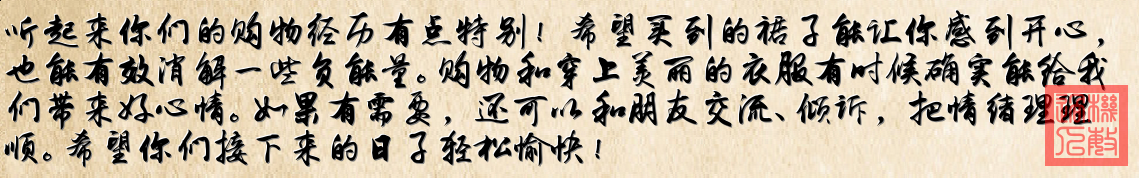 听起来你们的购物经历有点特别！希望买到的裙子能让你感到开心，
也能有效消解一些负能量。购物和穿上美丽的衣服有时候确实能给我
们带来好心情。如果有需要，还可以和朋友交流、倾诉，把情绪理理
顺。希望你们接下来的日子轻松愉快！